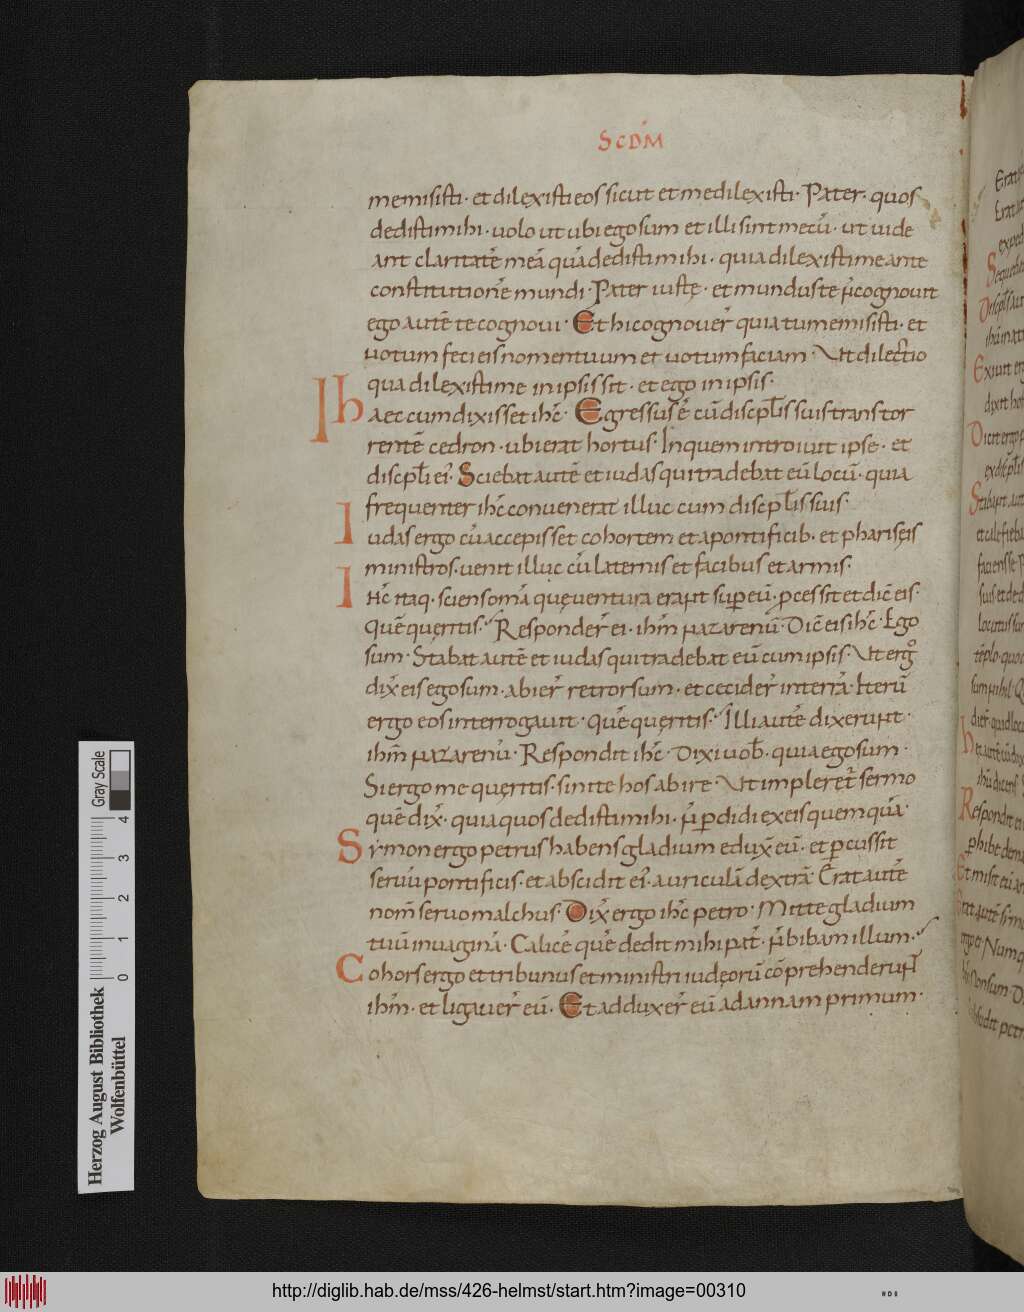 SCDM̄
me misisti · et dilexisti eos sicut et me dilexisti · Pater · quos
dedisti mihi · uolo ut ubi ego sum et illi sint mecū · ut uide
ant claritatē meā quā dedisti mihi · quia dilexisti me ante
constitutionē mundi · Pater iustę · et mundus te ñ cognouit
ego autē te cognoui · Et hi cognouer̄ quia tu me misisti · et
notum feci eis nomen tuum et notum faciam · Ut dilectio
qua dilexisti me in ipsis sit · et ego in ipsis ·
Haec cum dixisset ihc̄ · Egressus ē cū discplīs suis trans tor
rentē cedron · ubi erat hortus · In quem introiuit ipse · et
discplī ei · Sciebat autē et iudas qui tradebat eū locū · quia
frequenter ihc̄ conuenerat illuc cum discplīs suis ·
Iudas ergo cū accepisset cohortem et a pontificib · et phariseis
ministros · uenit illuc cū laternis et facibus et armis ·
Ihc̄ itaq · sciens omā quę uentura erant sup eū · pcessit et dic̄ eis ·
Quē queritis · Responder̄ ei · ihm̄ nazarenū · Dic̄ eis ihc̄ · Ego
sum · Stabat autē et iudas qui tradebat eū cum ipsis · Ut ergo
dix̄ eis ego sum · abier̄ retrorsum · et cecider̄ in terrā · Iterū
ergo eos interrogauit · quē queritis · Illi autē dixerunt ·
ihm̄ nazarenū · Respondit ihc̄ · Dixi uob̄ · quia ego sum ·
Si ergo me queritis · sinite hos abire · Ut impleret̄ sermo
quē dix̄ · quia quos dedisti mihi · ñ pdidi ex eis quemquā ·
Symon ergo petrus habens gladium eduxit eū · et pcussit
seruū pontificis · et abscidit ei auriculā dextrā · Erat autē
nom̄ seruo malchus · Dix̄ ergo ihc̄ petro · Mitte gladium
tuū in uaginā · Calicē quē dedit mihi pat̄ · ñ bibam illum ·
Cohors ergo et tribunus et ministri iudeorū cōprehenderunt
ihm̄ · et ligauer̄ eū · Et adduxer̄ eū ad annam primum ·
Herzog August Bibliothek
Wolfenbüttel
Gray Scale
0 1 2 3 4
http://diglib.hab.de/mss/426-helmst/start.htm?image=00310